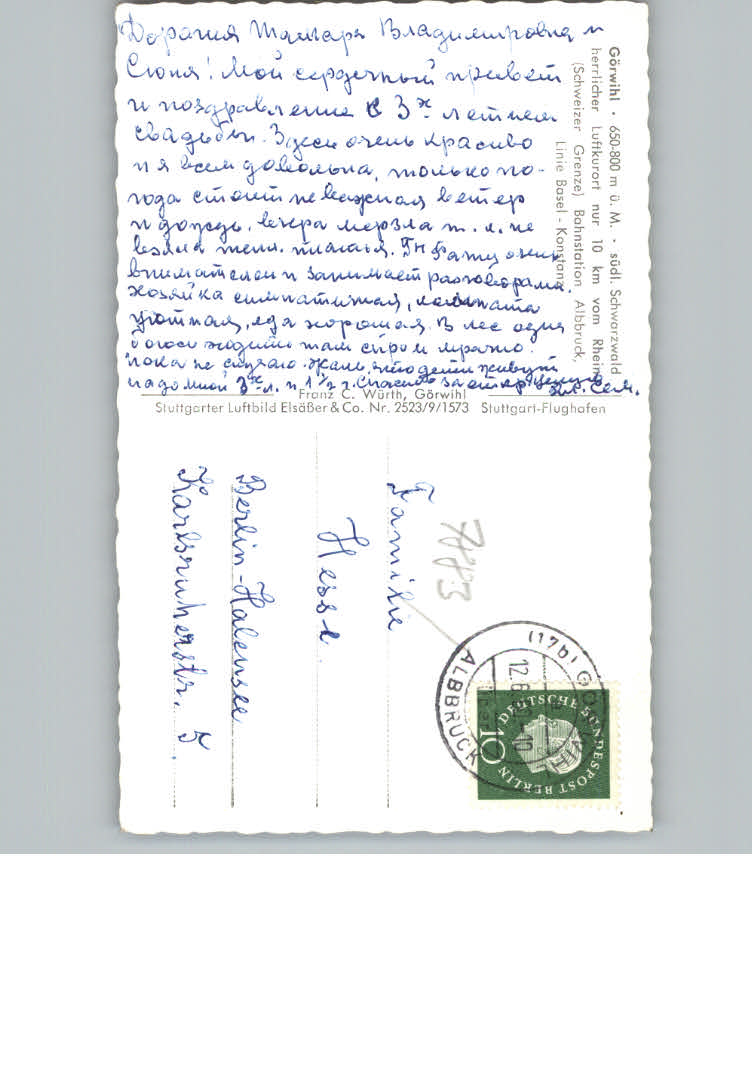 Дорогия Тамара Владимировна и
Сюня! Мой сердечный привет
и поздравление с 3х летием
свадьбы. Здесь очень красиво
и я всем довольна, только по-
года стоит неважная ветер
и дождь. Вчера мерзла т. к. не
взяла тепл. платья. Гн очень
внимателен и занимает разговорами.
Хозяйка симпатичная, комната
уютная, еда хорошая. В лес одна
боюсь ходить там сыро и мрачно.
пока не скучаю. Жаль, что дети живут
надо мной 3х л. и 1½ г. Спасибо за
Görwihl · 650-800 m ü. M. · südl. Schwarzwald
herrlicher Luftkurort nur 10 km vom Rhein
(Schweizer Grenze) Bahnstation Albbruck,
Linie Basel - Konstanz
Franz C. Würth, Görwihl
Stuttgarter Luftbild Elsäßer & Co. Nr. 2523/9/1573 Stuttgart-Flughafen
Familie
Hesse
Berlin-Halensee
Karlsruherstr. 5
7883
(17b) GÖRWIHL
12.6.
über
ALBBRUCK
DEUTSCHE BUNDESPOST BERLIN
10